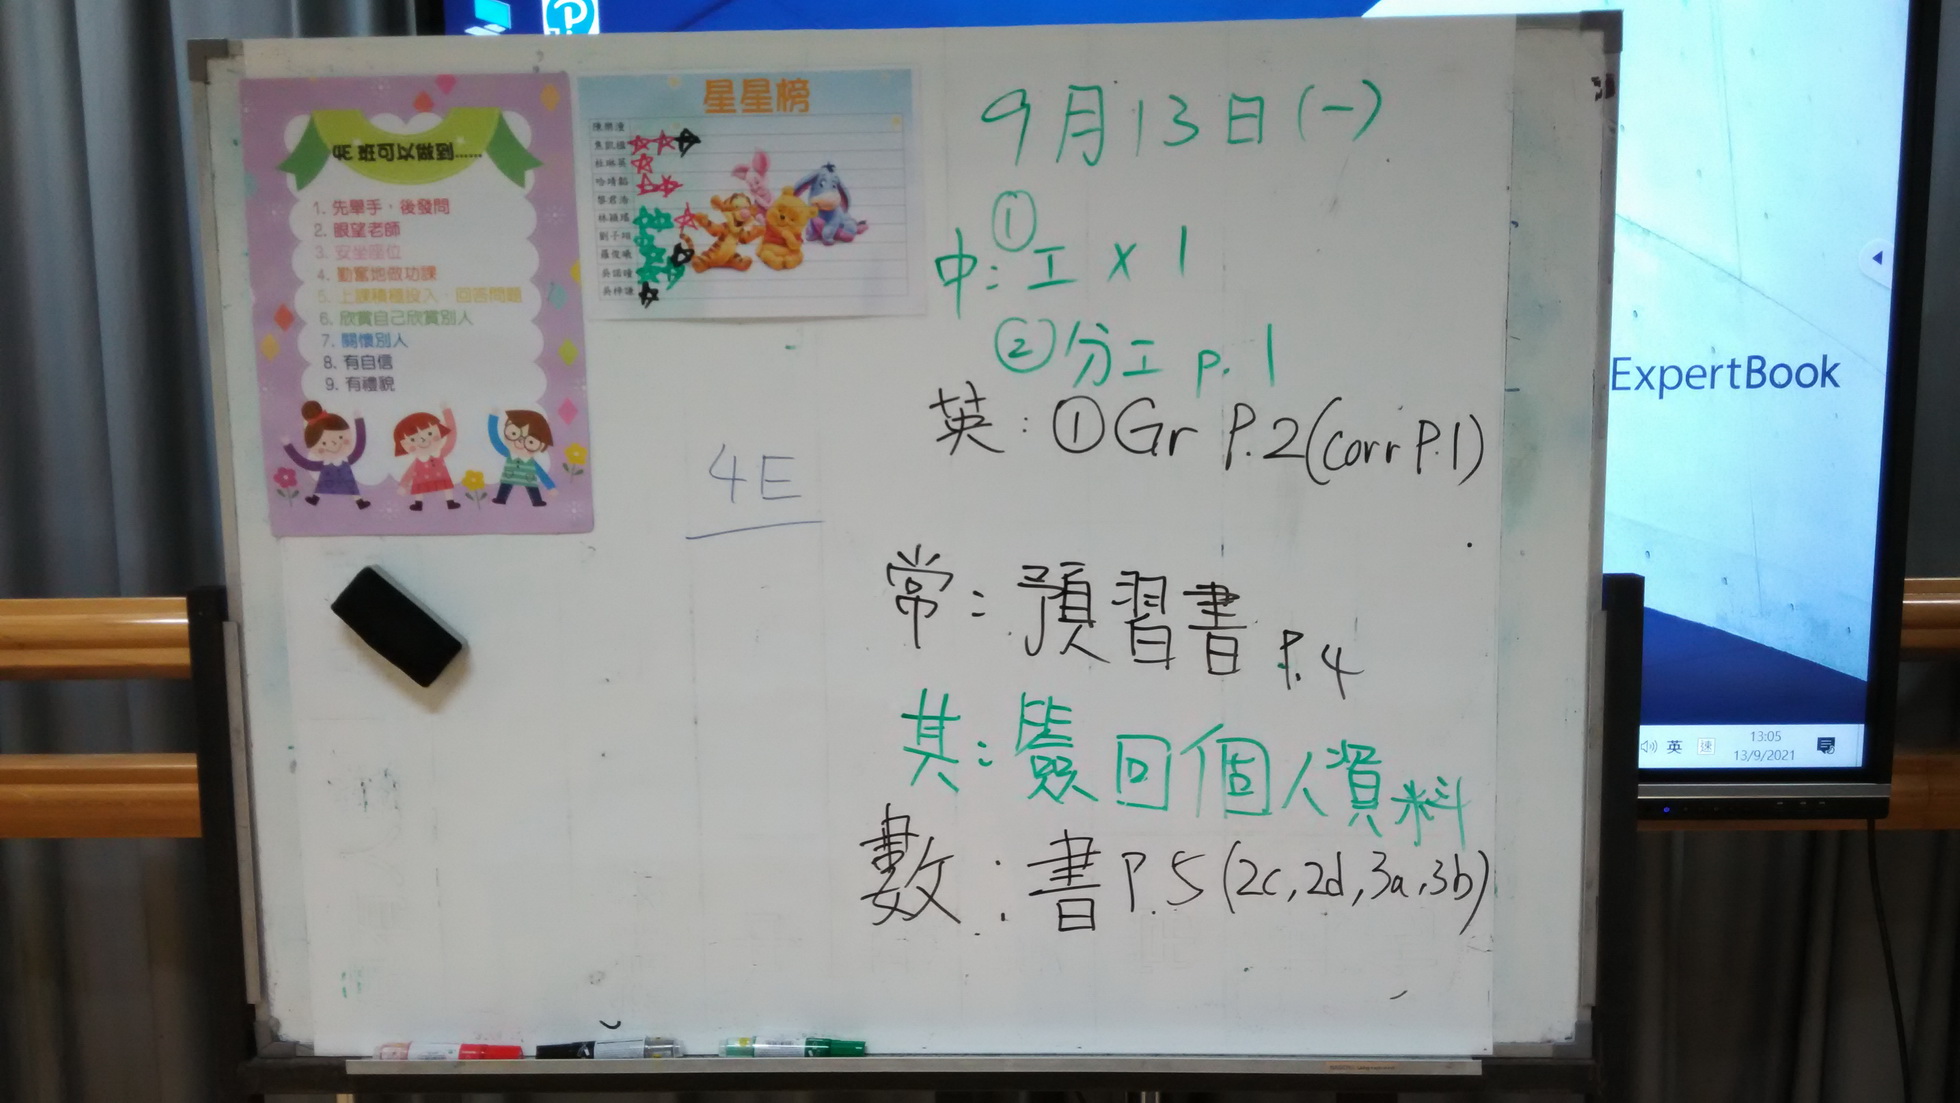 4E班可以做到......
1. 先舉手，後發問
2. 眼望老師
3. 安坐座位
4. 勤奮地做功課
5. 上課積極投入，回答問題
6. 欣賞自己欣賞別人
7. 關懷別人
8. 有自信
9. 有禮貌
星星榜
4E
9月13日(一)
中：①工 x 1
②分工 p.1
英：①Gr P.2(corr P.1)
常：預習書 P.4
其：簽回個人資料
數：書P.5(2c,2d,3a,3b)
ExpertBook
英 速
13:05
13/9/2021